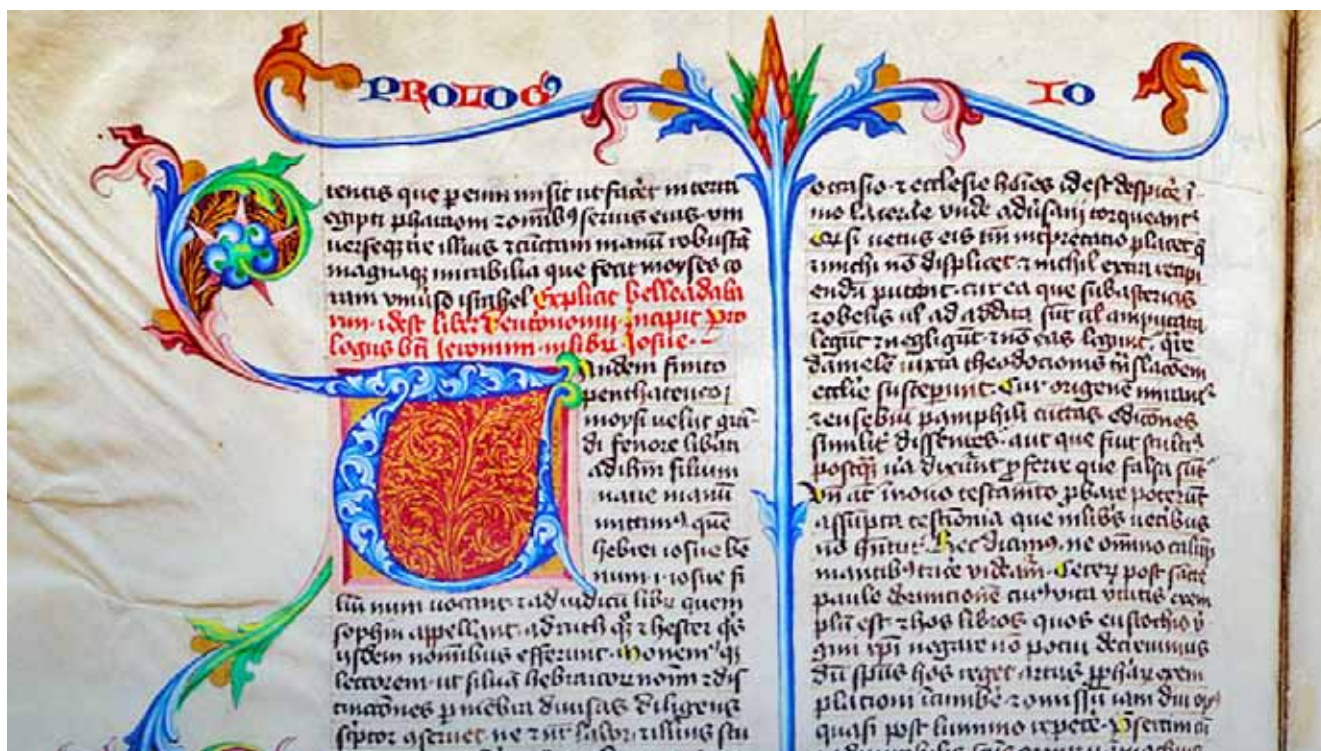 PROLOG9 IO
tentis que p eum misit ut facet in terra
egypti pharaoni ⁊ omib9 seruis eius. vni
verseqz tre illius ⁊ cunctam manū robustā
magnaqz mirabilia que fecit moyses co
ram vniuso israhel Explicit helleadaba
rim. idest liber deutronomii. Incipit pro
logus bti Jeronimi. in libru Josue.
Tandem finito
penthateuco
moysi uelut grā
di fenore libati
ad ihm filium
naue manū
mittim9 quē
hebrei iosue bē
num .i. iosue fi
liū num uocant ⁊ ad iudicū libr quem
sophtim appellant. ad ruth qz ⁊ hester qs
iisdem nomibus efferunt. Monem9 qz
lectorem. ut siluā hebraicor nomī ⁊ dis
tinctiones p mēbra diuisas diligens
sciptor 9seruet. ne ⁊ nr labor. ⁊ illius stu
occasio. ⁊ ecclesie hoīes idest despice ī
mo lacerare vnde adūsarii torqueant
Et si uetus eis tm interpretacio placet q
⁊ michi nō displicet. ⁊ nichil extra recipi
endū putant. cur ea que sub astericis
⁊ obelis ul addita sūt ul amputata
legūt ⁊ negligūt ⁊ nō eas legunt. qre
danielē iuxta theodocionis tnslacōem
ecclie susceperunt. Cur origenē mirant
⁊ eusebiū pamphili cūctas edicōnes
similit disserētes. aut que fuit stulta
postqz ua dixerunt pferre que falsa sūt
Vn at in nouo testamto pbare poterūt
assūpta testimonia que in libis ueteribus
nō hntur. Hec dicim9. ne omino calūp
mantib9 tace videam. Ceterz post sācte
paule dormicionē cui9 uita vtutis exem
plū est ⁊ hos libros quos eustochio v
gini xpi negare nō potui decreuim9
dū spūs hos reget artus pphar exem
placioni icumbē ⁊ omissū iam diu op9
quasi post liminio repete. Psertim cū